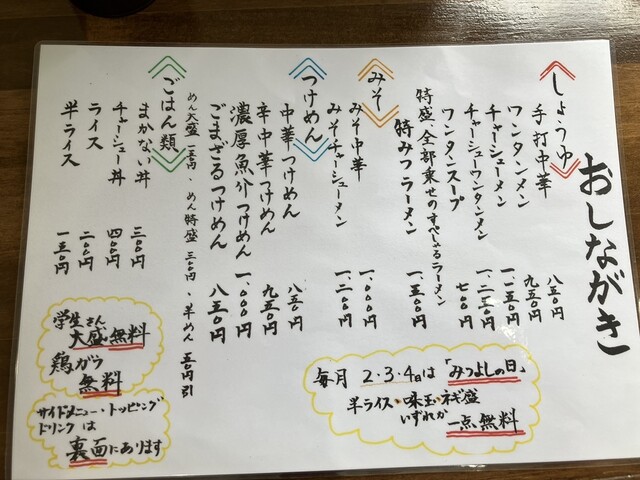 おしながき
しょうゆ
手打中華 八五〇円
ワンタンメン 九五〇円
チャーシューメン 一、一五〇円
チャーシューワンタンメン 一、二五〇円
ワンタンスープ 七〇〇円
特盛 全部乗せのすぺしゃるラーメン
特みつラーメン 一、五〇〇円
みそ
みそ中華 一、〇〇〇円
みそチャーシューメン 一、二〇〇円
つけめん
中華つけめん 八五〇円
辛中華つけめん 九五〇円
濃厚魚介つけめん 一、〇〇〇円
ごまざるつけめん 八五〇円
めん大盛 一五〇円、めん特盛 三〇〇円、半めん 五〇円引
ごはん類
まかない丼 三〇〇円
チャーシュー丼 四〇〇円
ライス 二〇〇円
半ライス 一五〇円
毎月 2・3・4日は「みつよしの日」
半ライス・味玉・ネギ盛
いずれか 一点無料
学生さん
大盛無料
鶏ガラ
無料
サイドメニュー・トッピング
ドリンクは
裏面にあります